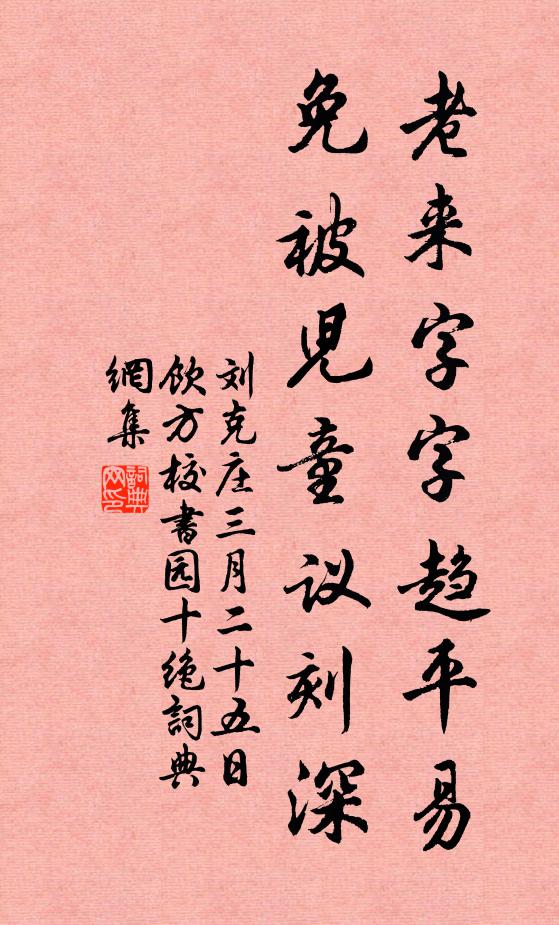 老来字字趋平易
免被児童议刻深
刘克庄三月二十五日
饮方校书园十绝詞典
網集
詞典
网印